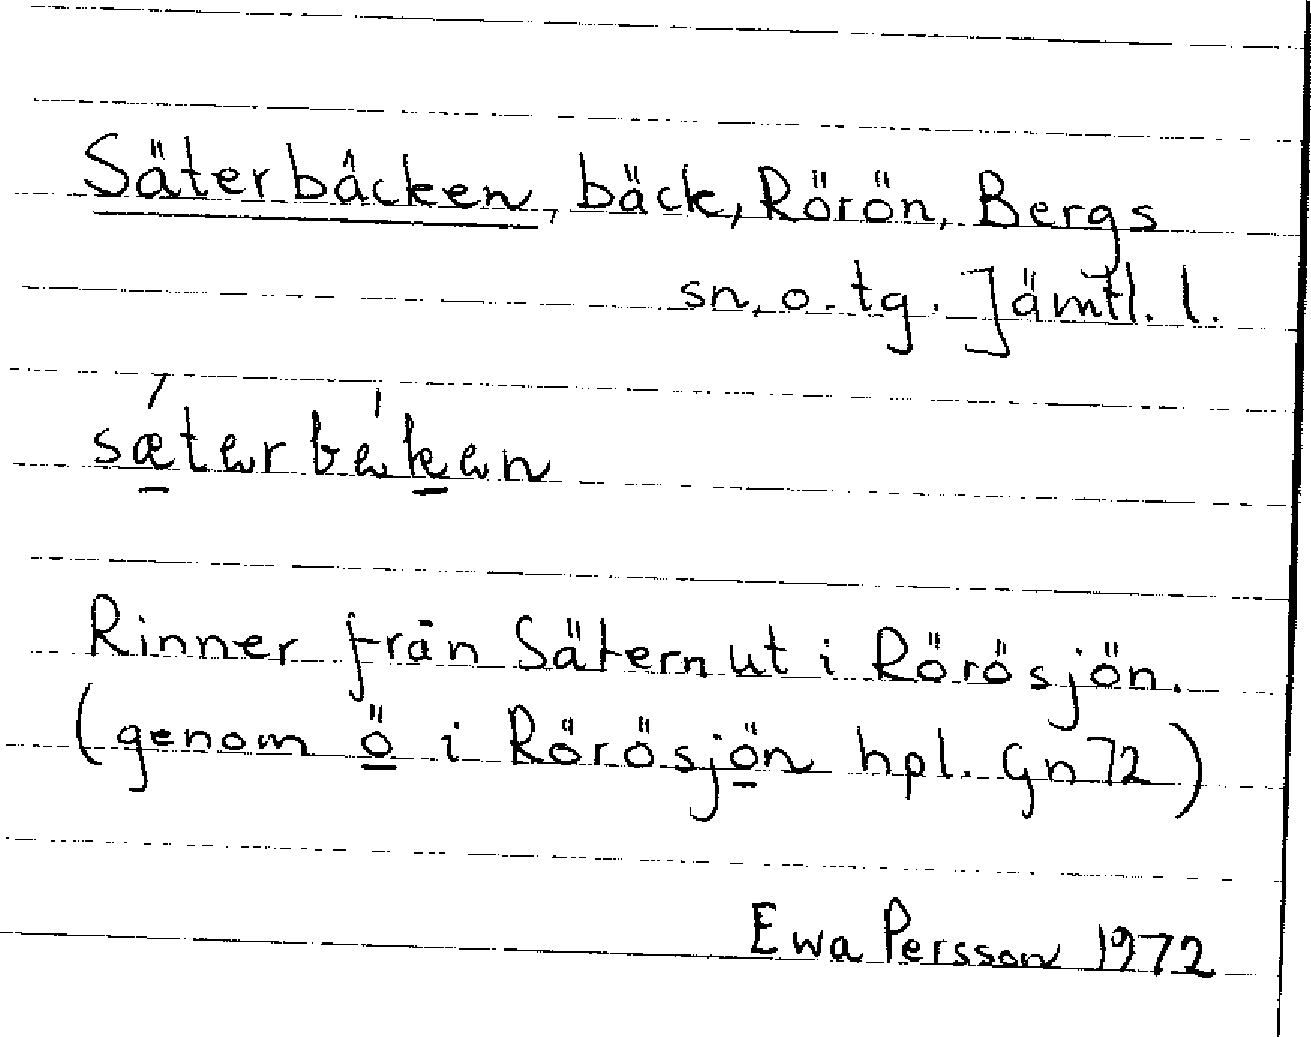 Säterbäcken, bäck, Rörön, Bergs
sn. o. tg. Jämtl. l.
sǽterbéken
Rinner från Sätern ut i Rörösjön.
(genom ö i Rörösjön hpl. Gn 72)
Ewa Persson 1972